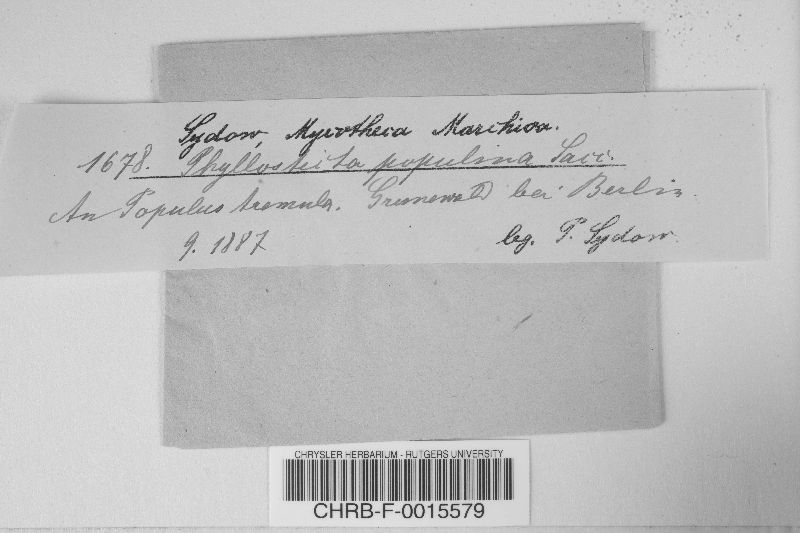 Sydow, Mycotheca Marchica.
1678. Phyllosticta populina Sacc.
An Populus tremula. Grunewald bei Berlin.
9. 1887
leg. P. Sydow.
CHRYSLER HERBARIUM - RUTGERS UNIVERSITY
CHRB-F-0015579